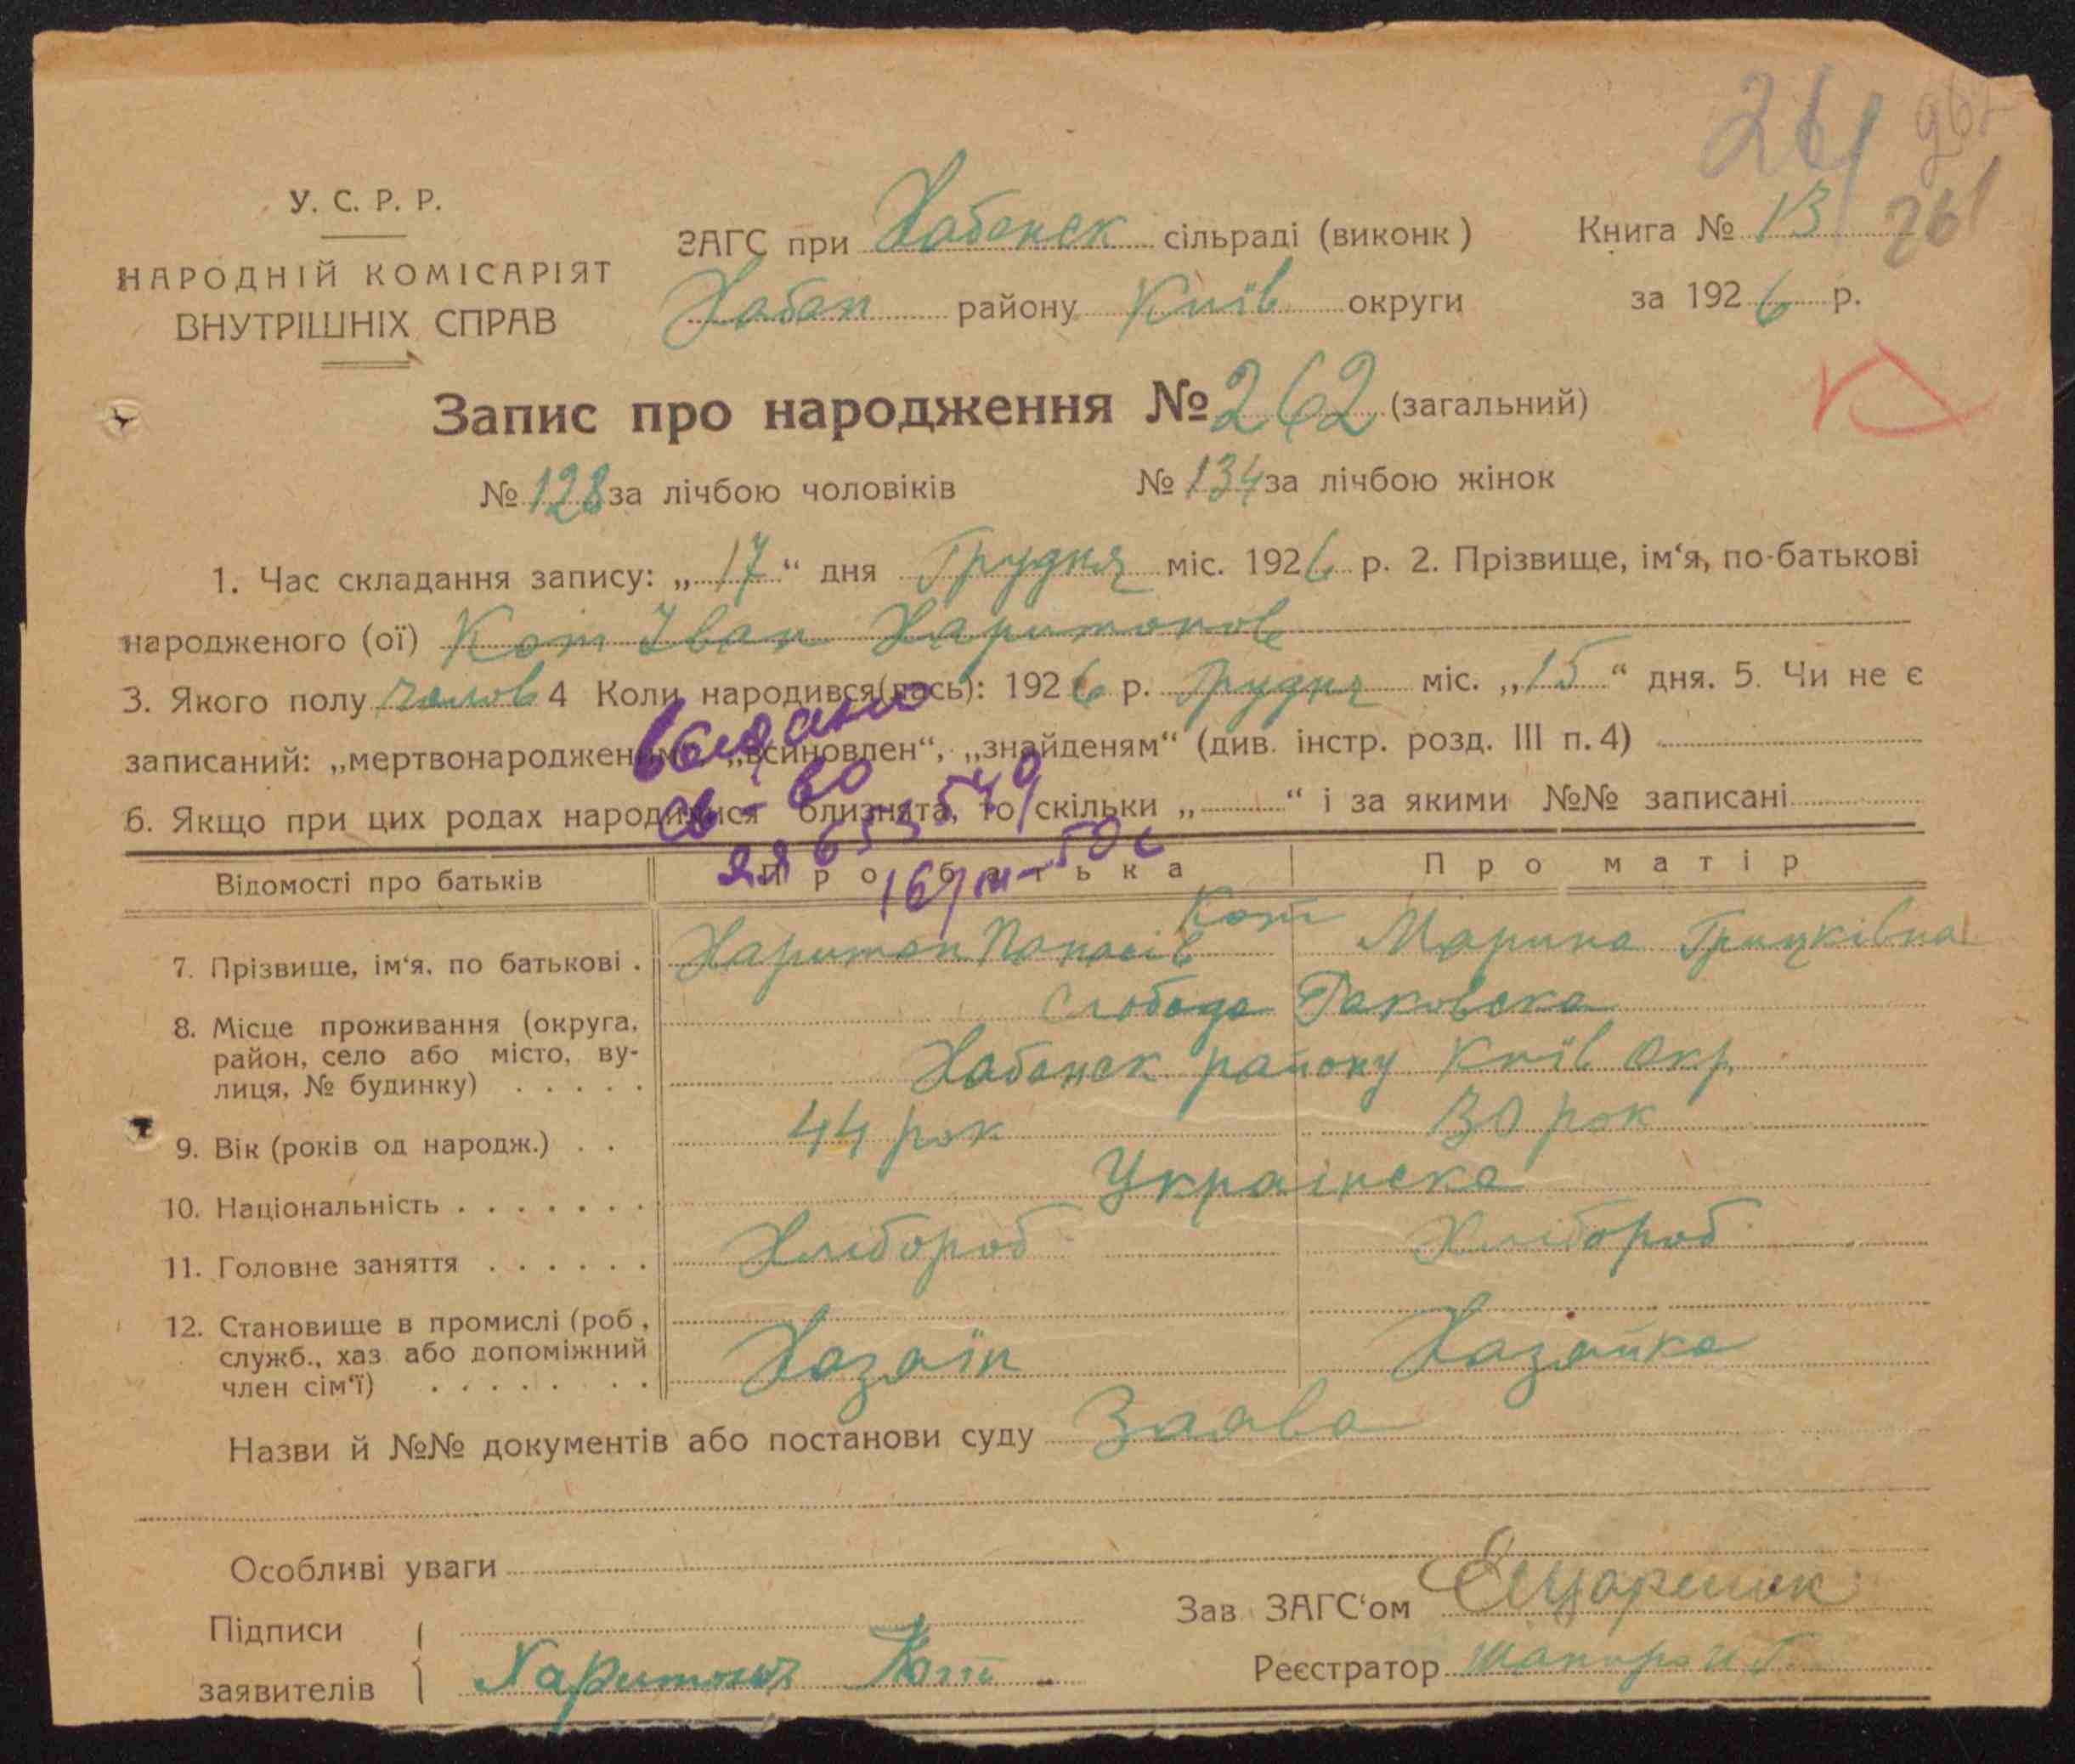 261 962
У. С. Р. Р.
НАРОДНІЙ КОМІСАРІЯТ
ВНУТРІШНІХ СПРАВ
ЗАГС при Хабенск сільраді (виконк)
Хабен району Київ округи
Книга № 13 261
за 1926 р.
Запис про народження № 262 (загальний)
№ 128 за лічбою чоловіків № 134 за лічбою жінок
1. Час складання запису: „17“ дня Грудня міс. 1926 р. 2. Прізвище, ім‘я, по-батькові
народженого (ої) Кот Іван Харитонов
3. Якого полу чолов 4 Коли народився(лась): 1926 р. Грудня міс. „15“ дня. 5. Чи не є
записаний: „мертвонародженим“, „всиновлен“, „знайденям“ (див. інстр. розд. III п. 4)
6. Якщо при цих родах народилися близнята, то скільки „ “ і за якими №№ записані
выдано
св-во
16/III-50
Відомості про батьків Про батька Про матір
7. Прізвище, ім‘я, по батькові . Харитон Панасів Кот Марина Грицківна
8. Місце проживання (округа, Слобода Раковска
район, село або місто, ву- Хабенск району Київ Окр.
лиця, № будинку) . . . . .
9. Вік (років од народж.) . . 44 рок 30 рок
10. Національність . . . . . . . Українска
11. Головне заняття . . . . . . Хлібороб Хлібороб
12. Становище в промислі (роб,
служб., хаз або допоміжний Хазаїн Хазяйка
член сім‘ї) . . . . . . .
Назви й №№ документів або постанови суду Заява
Особливі уваги
Зав ЗАГС‘ом
Підписи
заявителів Харитон Кот
Реєстратор Шапиро